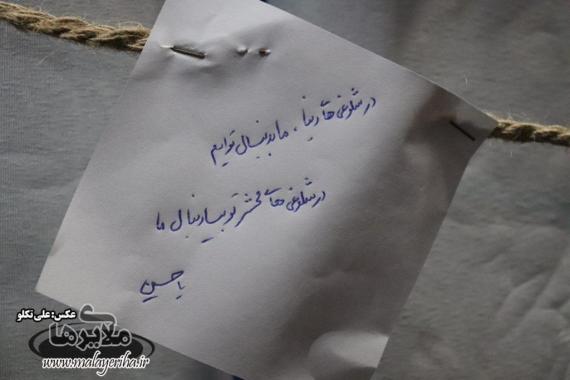 در شلوغی های دنیا، ما بدنبال توایم
در شلوغی های محشر تو بیا دنبال ما
یا حسین
عکس: علی تکلو
ملایری‌ها
www.malayeriha.ir